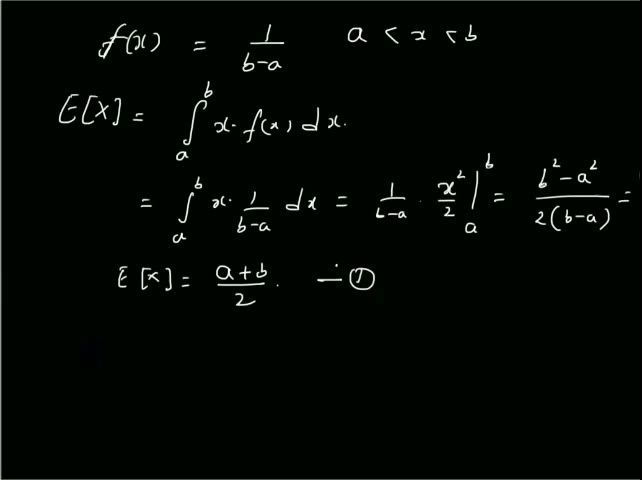 f(x) = 1/(b-a) a < x < b
E[X] = ∫_a^b x. f(x) dx.
= ∫_a^b x. 1/(b-a) dx = 1/(b-a) . x²/2 |_a^b = (b²-a²)/(2(b-a)) =
E[x] = (a+b)/2 . — ①